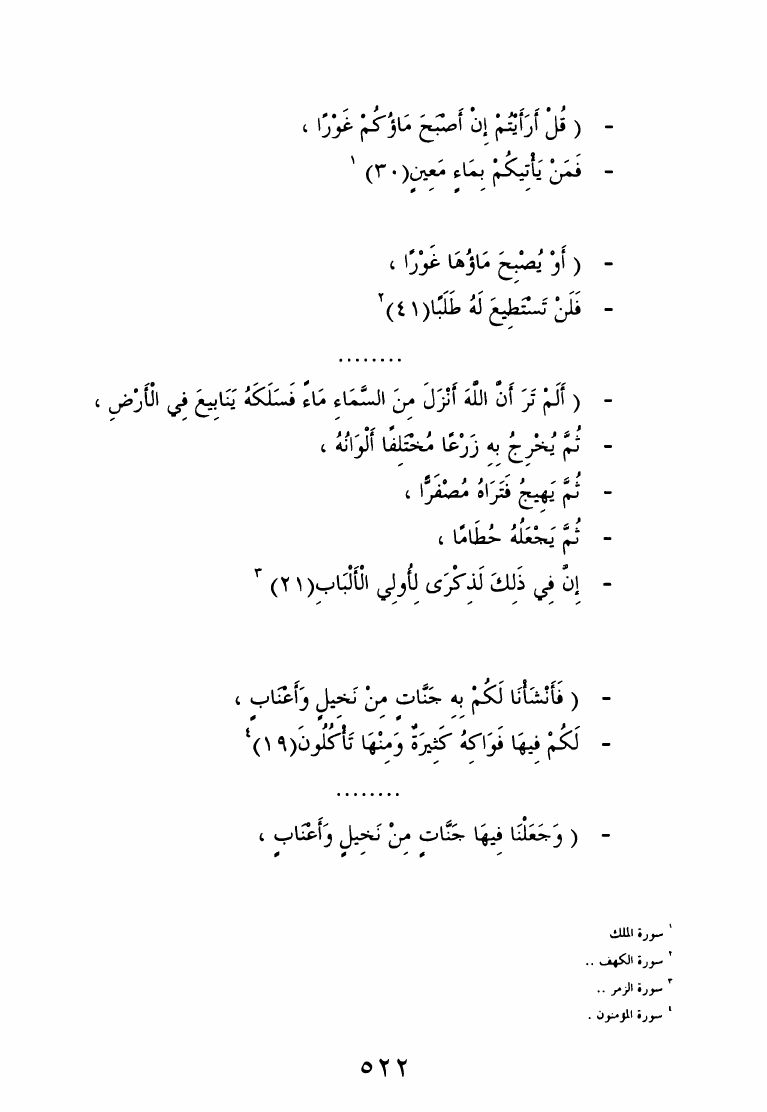 - ( قُلْ أَرَأَيْتُمْ إِنْ أَصْبَحَ مَاؤُكُمْ غَوْرًا ،
- فَمَنْ يَأْتِيكُمْ بِمَاءٍ مَعِينٍ(٣٠) ١
- ( أَوْ يُصْبِحَ مَاؤُهَا غَوْرًا ،
- فَلَنْ تَسْتَطِيعَ لَهُ طَلَبًا(٤١)٢
........
- ( أَلَمْ تَرَ أَنَّ اللَّهَ أَنْزَلَ مِنَ السَّمَاءِ مَاءً فَسَلَكَهُ يَنَابِيعَ فِي الْأَرْضِ ،
- ثُمَّ يُخْرِجُ بِهِ زَرْعًا مُخْتَلِفًا أَلْوَانُهُ ،
- ثُمَّ يَهِيجُ فَتَرَاهُ مُصْفَرًّا ،
- ثُمَّ يَجْعَلُهُ حُطَامًا ،
- إِنَّ فِي ذَلِكَ لَذِكْرَى لِأُولِي الْأَلْبَابِ(٢١) ٣
- ( فَأَنْشَأْنَا لَكُمْ بِهِ جَنَّاتٍ مِنْ نَخِيلٍ وَأَعْنَابٍ ،
- لَكُمْ فِيهَا فَوَاكِهُ كَثِيرَةٌ وَمِنْهَا تَأْكُلُونَ(١٩)٤
........
- ( وَجَعَلْنَا فِيهَا جَنَّاتٍ مِنْ نَخِيلٍ وَأَعْنَابٍ ،
١ سورة الملك
٢ سورة الكهف ..
٣ سورة الزمر ..
٤ سورة المؤمنون .
٥٢٢